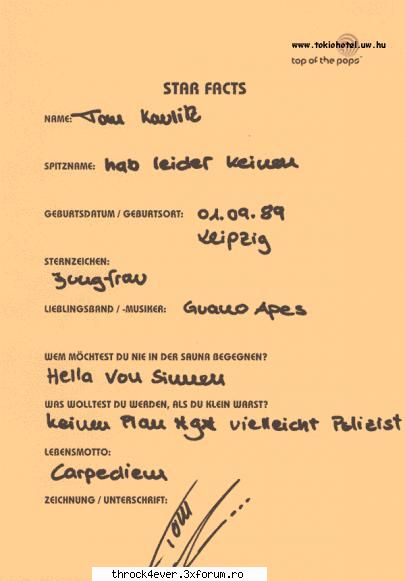 www.tokiohotel.uw.hu
top of the pops
STAR FACTS
NAME: Tom Kaulitz
SPITZNAME: hab leider keinen
GEBURTSDATUM / GEBURTSORT: 01.09.89
Leipzig
STERNZEICHEN:
Jungfrau
LIEBLINGSBAND / -MUSIKER: Guano Apes
WEM MÖCHTEST DU NIE IN DER SAUNA BEGEGNEN?
Hella von Sinnen
WAS WOLLTEST DU WERDEN, ALS DU KLEIN WARST?
keinen Plan vielleicht Polizist
LEBENSMOTTO:
Carpediem
ZEICHNUNG / UNTERSCHRIFT:
Tom
throck4ever.3xforum.ro